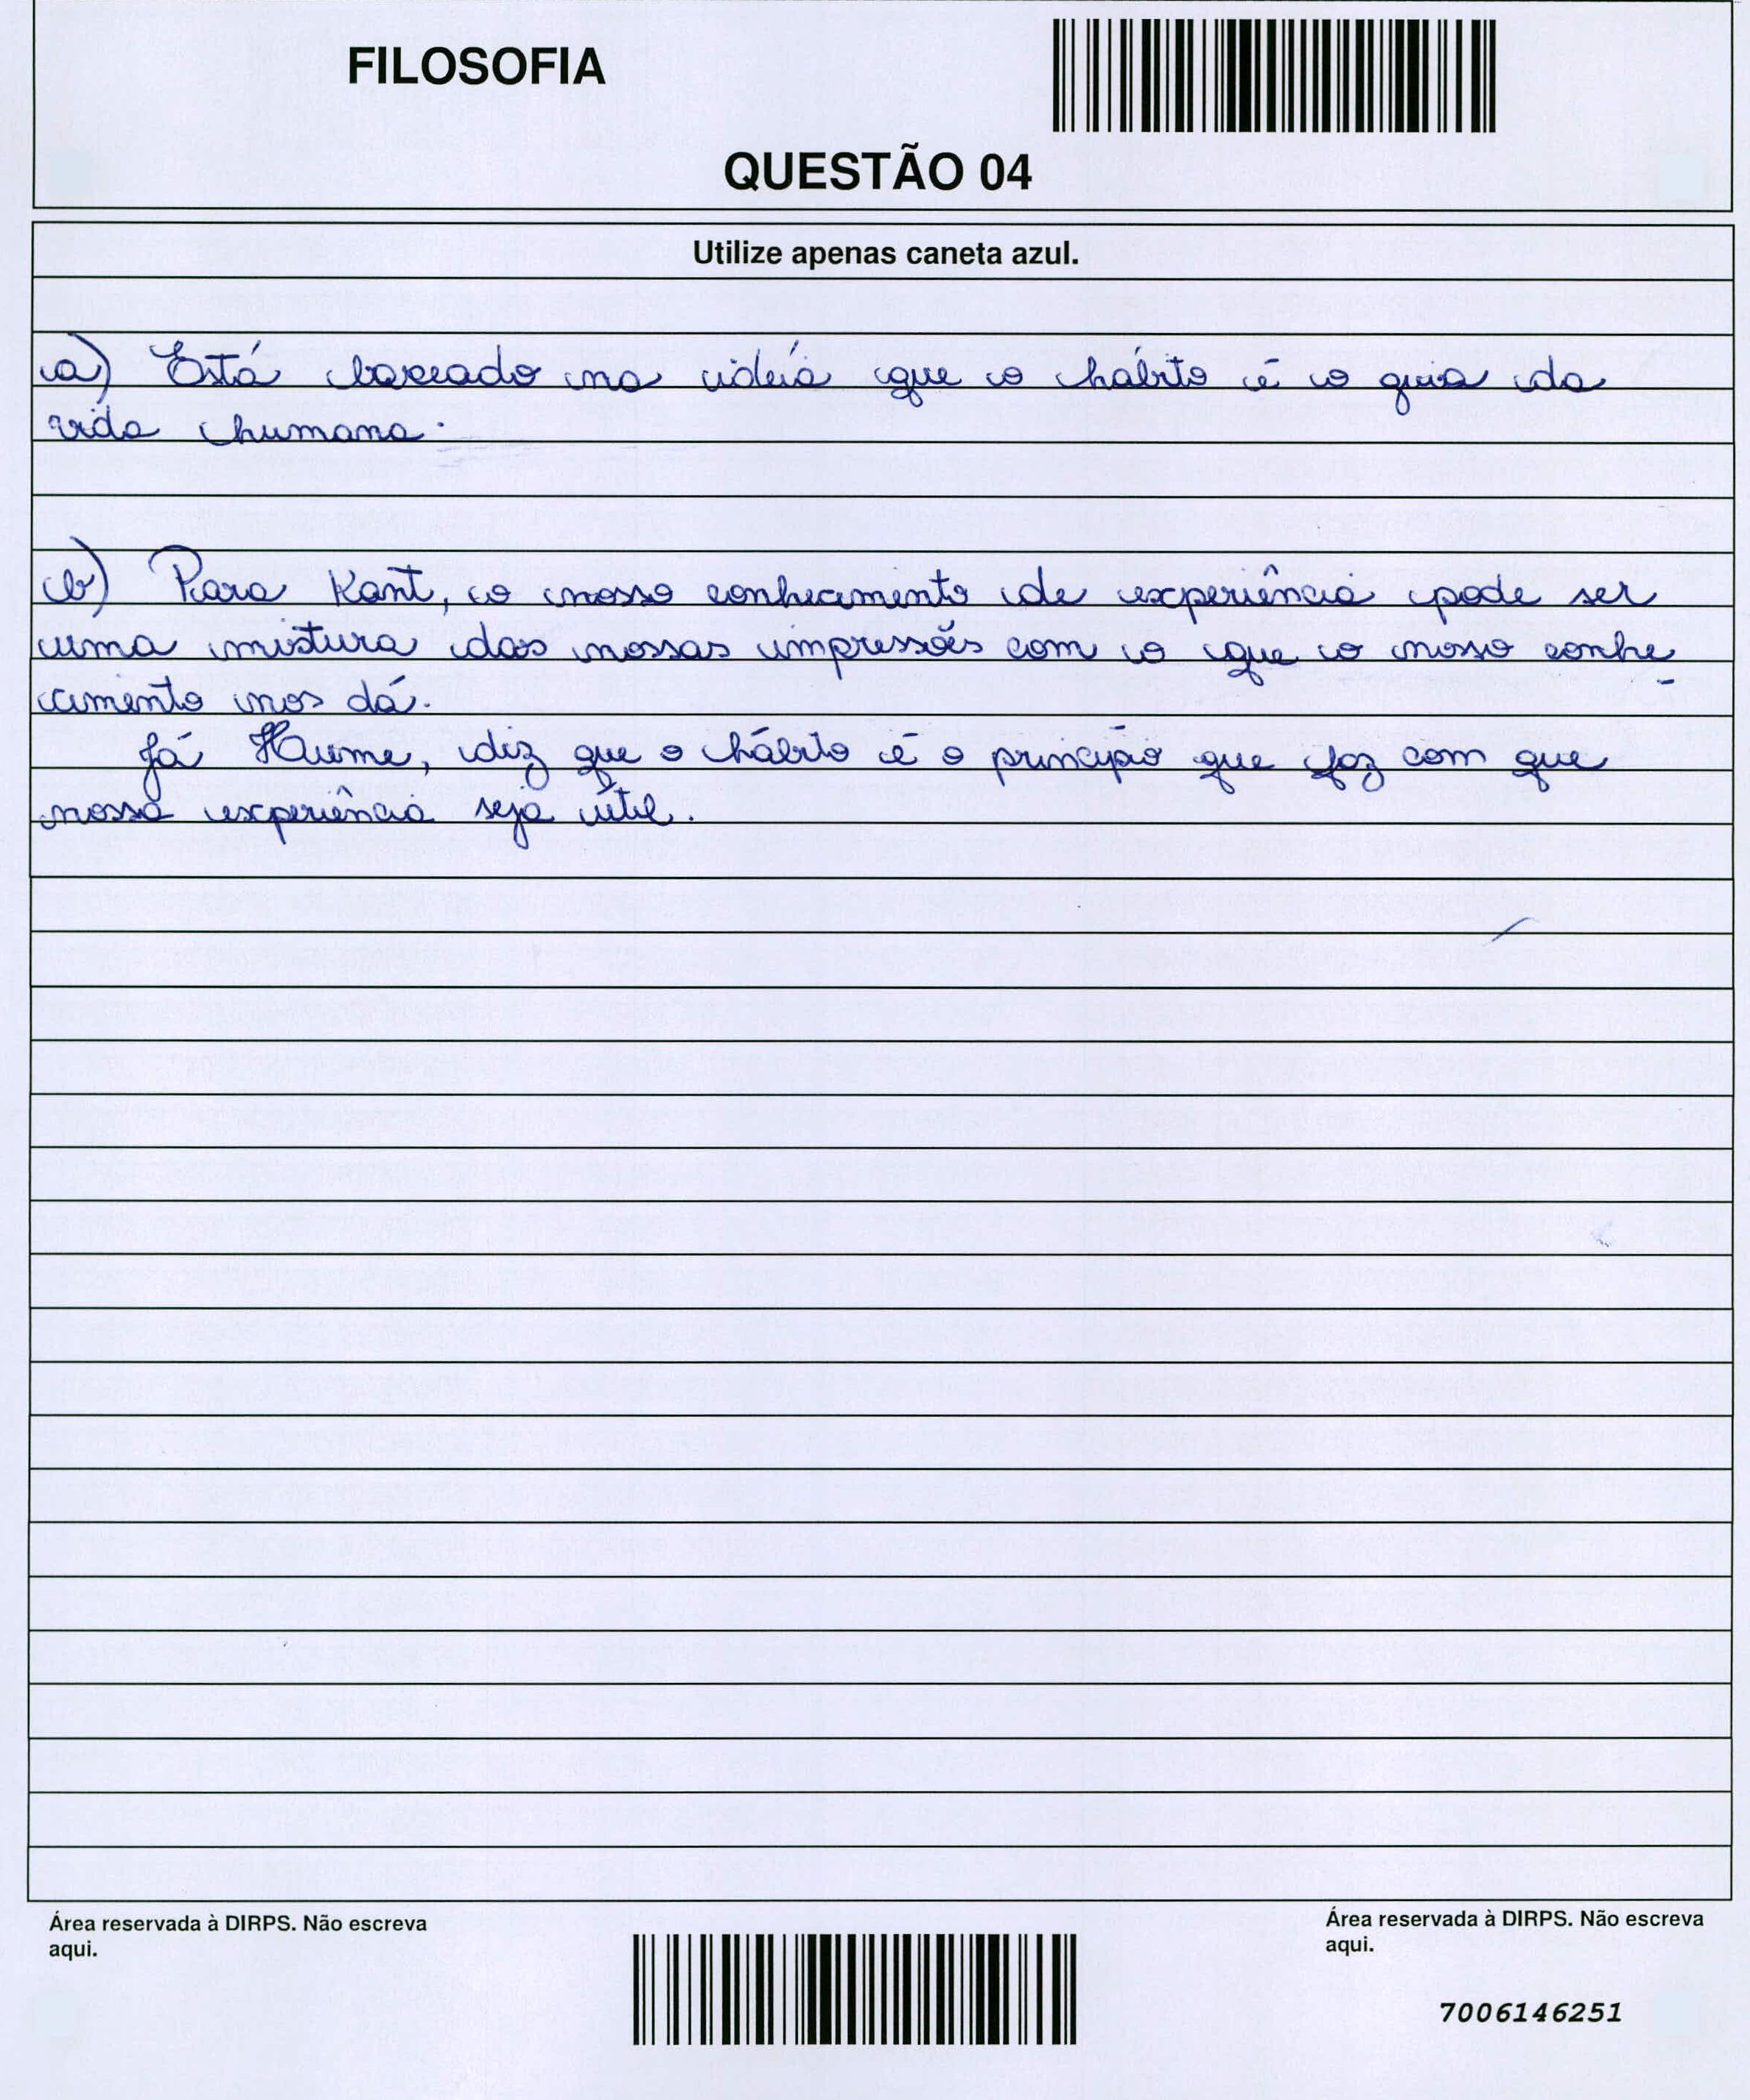 FILOSOFIA
QUESTÃO 04
Utilize apenas caneta azul.
a) Está baseado na idéia que o hábito é o guia da
vida humana.
b) Para Kant, o nosso conhecimento de experiência pode ser
uma mistura das nossas impressões com o que o nosso conhe-
cimento nos dá.
Já Hume, diz que o hábito é o princípio que faz com que
nossa experiência seja útil.
Área reservada à DIRPS. Não escreva
aqui.
Área reservada à DIRPS. Não escreva
aqui.
7006146251